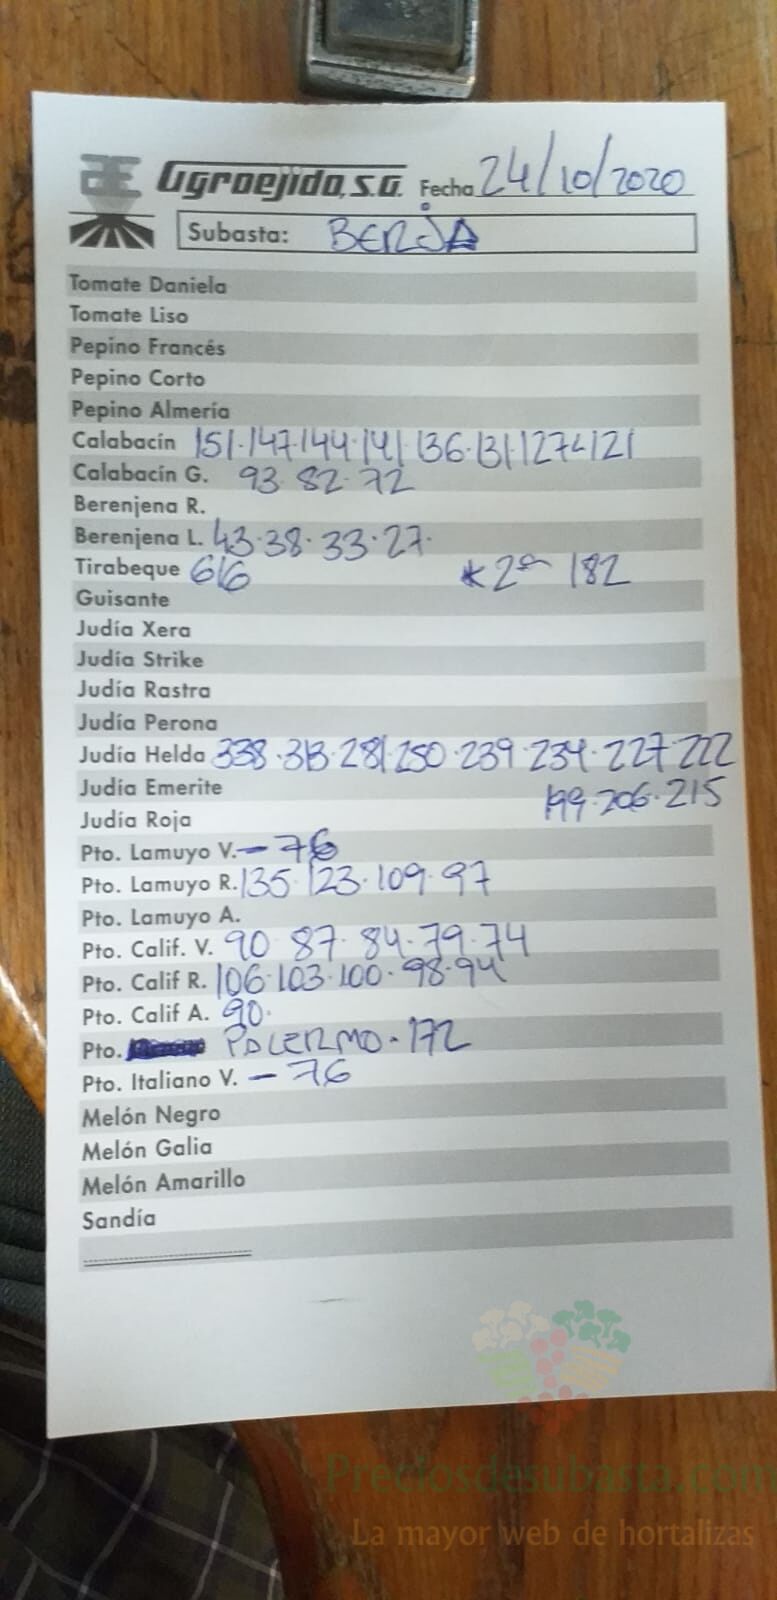 Agroejido, S.A. Fecha 24/10/2020
Subasta: BERJA
Tomate Daniela
Tomate Liso
Pepino Francés
Pepino Corto
Pepino Almería
Calabacín 151·147·144·141 136·131·127<121
Calabacín G. 93·82·72
Berenjena R.
Berenjena L. 43·38·33·27·
Tirabeque 616 *2ª 182
Guisante
Judía Xera
Judía Strike
Judía Rastra
Judía Perona
Judía Helda 338·313·281·250·239·234·227·222
Judía Emerite 199·206·215
Judía Roja
Pto. Lamuyo V. - 76
Pto. Lamuyo R. 135·123·109·97
Pto. Lamuyo A.
Pto. Calif. V. 90·87·84·79·74
Pto. Calif R. 106·103·100·98·94
Pto. Calif A. 90·
Pto. PALERMO·172
Pto. Italiano V. - 76
Melón Negro
Melón Galia
Melón Amarillo
Sandía
Preciosdesubasta.com
La mayor web de hortalizas